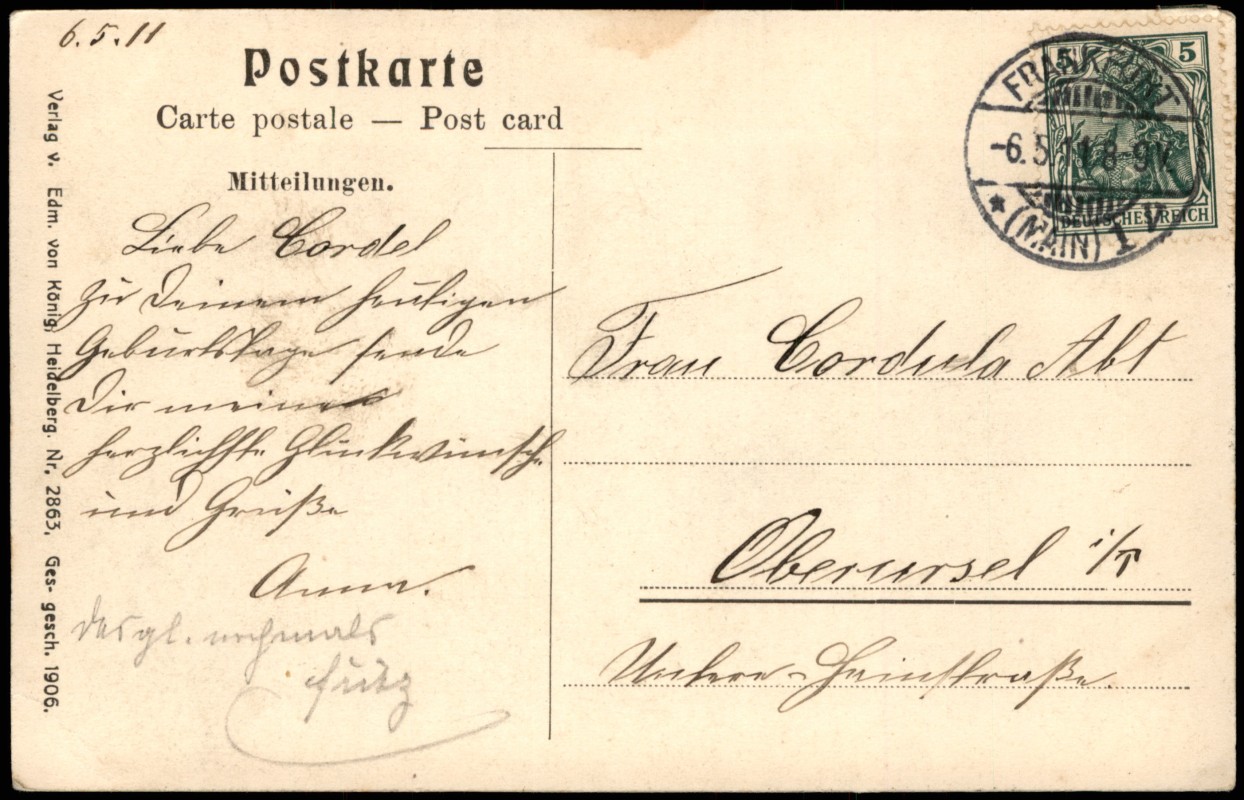 6.5.11
Postkarte
Carte postale — Post card
Mitteilungen.
Liebe Cordel
Zu Deinem heutigen
Geburtstage sende
Dir meine
herzlichste Glückwünsche
und Grüße
Anna.
desgl. nochmals
Fritz
Verlag v. Edm. von König, Heidelberg. Nr. 2863, Ges- gesch. 1906.
5 5
DEUTSCHES REICH
FRANKFURT
-6.5.11.8-9V.
* (MAIN) 1 V
Frau Cordula Abt
Oberursel i/T
Untere-Hainstraße.